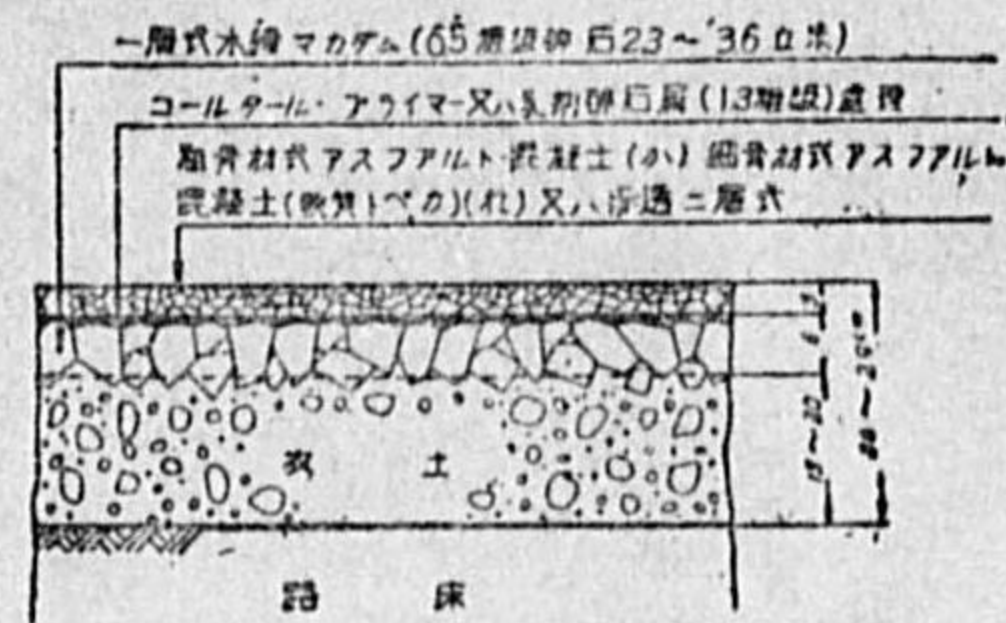 一層式水締マカダム(65粍級砕石23~36立米)
コールタール・プライマー又ハ乳剤砕石層(13粍級)處理
粗骨材式アスファルト混凝土(か)細骨材式アスファルト
混凝土(軟質トペカ)(れ)又ハ滲透二層式
15~20
土
路床